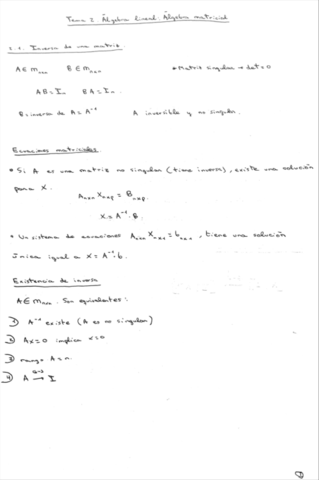 Tema 2. Álgebra lineal. Álgebra matricial
2.1. Inversa de una matriz
A ∈ m_nxn   B ∈ m_nxn   * Matriz singular → det = 0
AB = I_n   BA = I_n.
B = inversa de A = A⁻¹   A inversible y no singular.
Ecuaciones matriciales
• Si A es una matriz no singular (tiene inversa), existe una solución
para X.
A_nxn X_nxp = B_nxp.
X = A⁻¹·B.
• Un sistema de ecuaciones A_nxn X_nx1 = b_nx1, tiene una solución
única igual a X = A⁻¹·b.
Existencia de inversa
A ∈ m_nxn. Son equivalentes:
1) A⁻¹ existe (A es no singular)
2) Ax = 0 implica x = 0
3) rango A = n.
4) A → I